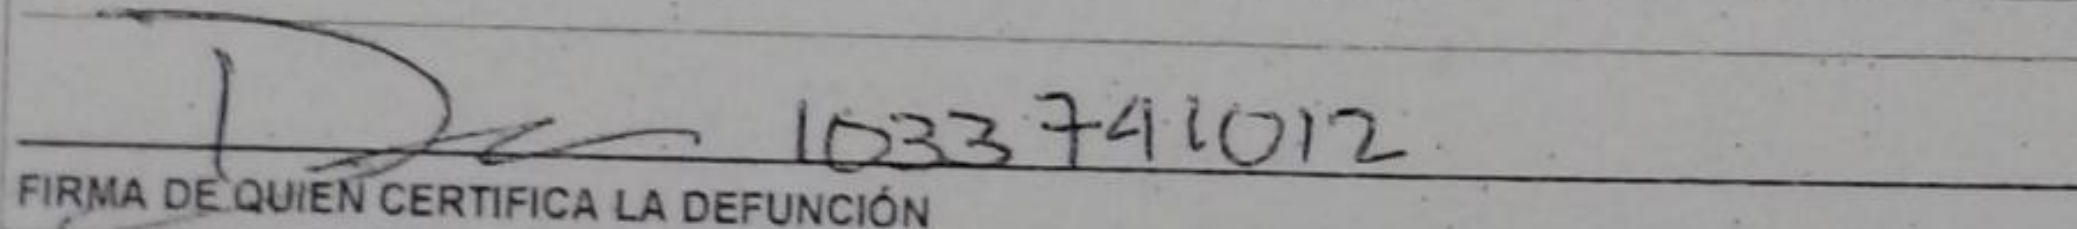 1033741012
FIRMA DE QUIEN CERTIFICA LA DEFUNCIÓN